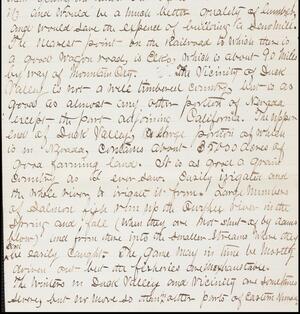 and would be a much better quality of lumber
and would save the expense of building a Saw Mill.
The nearest point on the Railroad to which there is
a good wagon road, is Elko, which is about 90 Miles
by way of Mountain City. The Vicinity of Duck
Valley is not a well timbered country, but is as
good as almost any other portion of Nevada
except the part adjoining California. The upper
end of Duck Valley, a large portion of which
is in Nevada, contains about 35,000 acres of
good farming land. It is as good a grain
country as I ever saw. Easily irrigated and
the whole river to irrigate it from. Large numbers
of Salmon fish run up the Owyhee River in the
Spring and fall (when they are not shut out by dams
) and from there into the smaller streams where they
are easily caught. The Game may in time be mostly
driven out but the fisheries are inexhaustible.
The winters in Duck Valley and Vicinity are sometimes
severe but no more so than other parts of Eastern Nevada